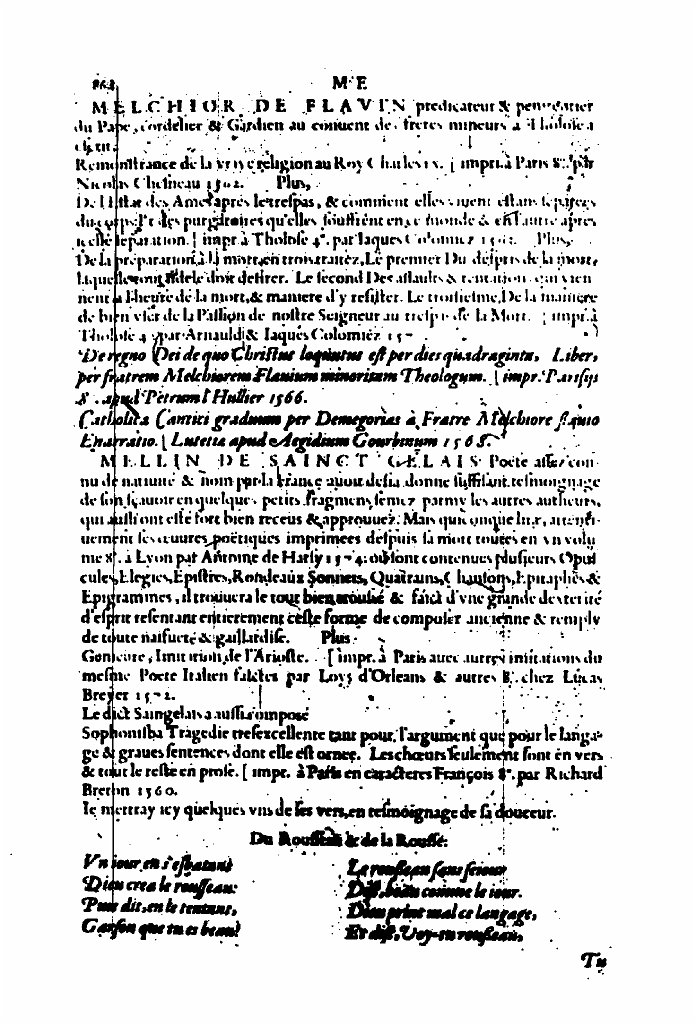 862 M E
MELCHIOR DE FLAVIN predicateur & penitentier
du Pape, cordelier & Gardien au conuent des freres mineurs a Tholose a
escrit
Remonstrance de la vraye religion au Roy Charles ix. [impr. à Paris 8°. par
Nicolas Chesneau 1562. Plus,
De l'estat des Ames apres le trespas, & comment elles viuent estans separees
du corps, Et des purgatoires qu'elles souffrent en ce monde & en l'autre apres
icelle separation. [impr à Tholose 4°. par Iaques Colomiez Plus,
De la preparation à la mort, en trois traitez, Le premier Du despris de la mort,
laquelle tout fidele doit desirer. Le second Des assaults & tentations qui vien
nent a l'heure de la mort, & maniere d'y resister. Le troisiesme, De la maniere
de bien vser de la Passion de nostre Seigneur au trespas de la Mort. [impr. à
Tholose 4 par Arnauld & Iaques Colomiéz
De regno Dei de quo Christus loquutus est per dies quadraginta, Liber,
per fratrem Melchiorem Flauium minoritam Theologum. [impr. Parisijs
8. apud Petrum l'Hullier 1566.
Catholica Cantici graduum per Demegorias à Fratre Melchiore flauio
Enarratio. [Lutetiæ apud Aegidium Gourbinum 1568.
MELLIN DE SAINCT GELAIS Poëte assez con
nu de nature & nom par la France auoit desia donné suffisant tesmoignage
de son sçauoir en quelques petits fragmens semez parmy les autres autheurs,
qui aussi ont esté fort bien receus & approuuez. Mais quiconque lira, attenti-
uement ses œuures poëtiques imprimees despuis sa mort toutes en vn volu
me 8°. à Lyon par Antoine de Harsy 1574. où sont contenues plusieurs Opus
cules, Elegies, Epistres, Rondeaux Sonnets, Quatrains, Chansons, Epitaphes &
Epigrammes, il trouuera le tout bien troussé & faict d'vne grande dexterité
d'esprit resentant entierement ceste forme de composer ancienne & remply
de toute naifueté & gaillardise. Plus
Geneure, Imitation de l'Arioste. [impr. à Paris auec autres imitations du
mesme Poete Italien faictes par Loys d'Orleans & autres 8. chez Lucas
Breyer 1572.
Le dict Saingelais a aussi composé
Sophonisba Tragedie tresexcellente tant pour l'argument que pour le langa-
ge & graues sentences dont elle est ornee. Les chœurs seulement sont en vers
& tout le reste en prose. [impr. à Paris en caracteres François 8°. par Richard
Breton 1560.
Ie mettray icy quelques vns de ses vers, en tesmoignage de sa douceur.
Du Rousseau & de la Rousse.
Vn iour en s'esbatant
Dieu crea le rousseau:
Puis dit, en le tentant,
Garson que tu es beau!
Le rousseau sans seiour
Dist, beau comme le iour.
Dieu print mal ce langage,
Et dist, Voy-tu rousseau,
Tu